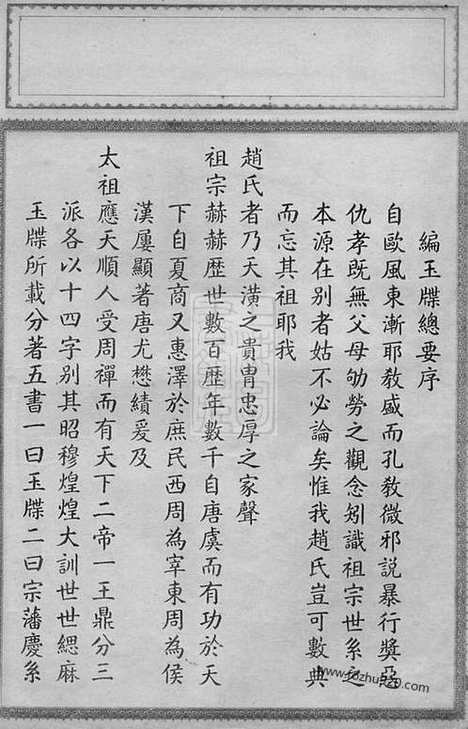 編玉牒總要序
自歐風東漸耶教盛而孔教微邪說暴行獎惡
仇孝既無父母劬勞之觀念矧識祖宗世系之
本源在别者姑不必論矣惟我趙氏豈可數典
而忘其祖耶我
趙氏者乃天潢之貴胄忠厚之家聲
祖宗赫赫歷世數百歷年數千自唐虞而有功於天
下自夏商又惠澤於庶民西周為宰東周為侯
漢屢顯著唐尤懋績爰及
太祖應天順人受周禪而有天下二帝一王鼎分三
派各以十四字别其昭穆煌煌大訓世世緦麻
玉牒所載分著五書一曰玉牒二曰宗藩慶系